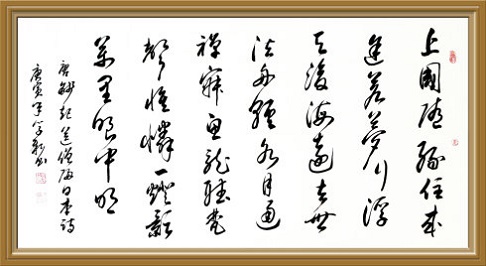 上國隨緣住來
途若夢行浮
天滄海遠去世
法舟輕水月通
禪寂魚龍聽梵
聲惟憐一燈影
萬里眼中明
唐錢起送僧歸日本詩
庚寅年